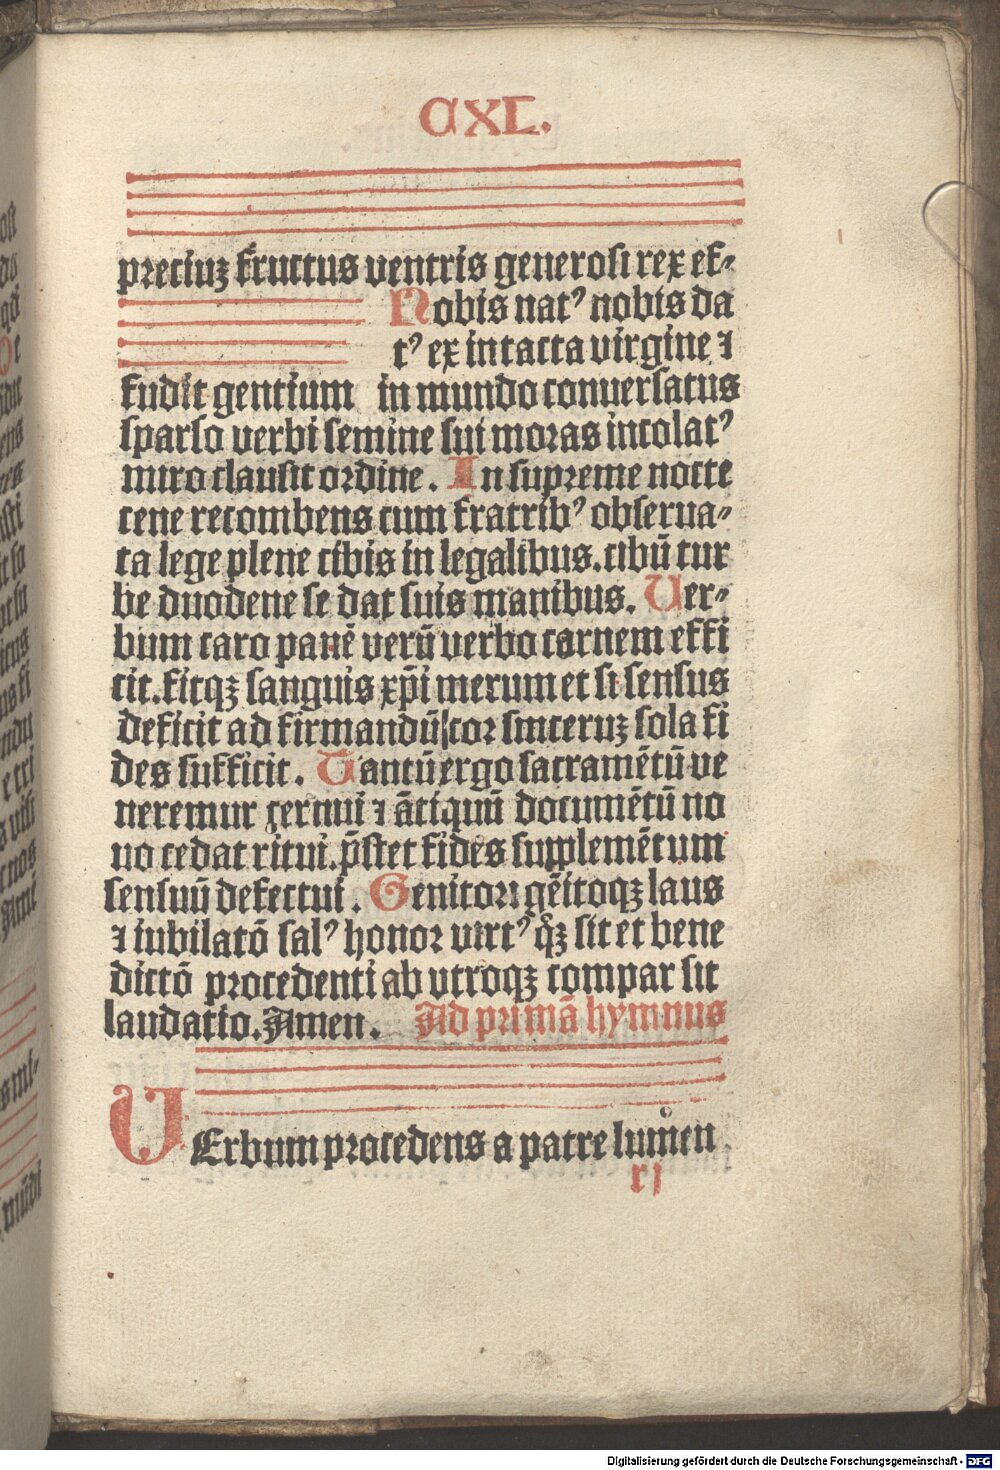 CXL.
preciuʒ fructus ventris generosi rex ef⸗
Nobis natꝰ nobis da
tꝰ ex intacta virgine ⁊
fudit gentium in mundo conuersatus
sparso verbi semine sui moras incolatꝰ
miro clausit ordine. In supreme nocte
cene recombens cum fratribꝰ obserua⸗
ta lege plene cibis in legalibus. cibū tur
be duodene se dat suis manibus. Uer⸗
bum caro panē verū verbo carnem effi
cit. fitqꝫ sanguis xp̄i merum et si sensus
deficit ad firmandū cor sinceruʒ sola fi
des sufficit. Tantū ergo sacramētū ve
neremur cernui ⁊ ātiquū documētū no
uo cedat ritui. p̄stet fides supplemētum
sensuū defectui. Genitori gēitoqꝫ laus
⁊ iubilatō salꝰ honor virtꝰ q̊ꝫ sit et bene
dictō procedenti ab vtroqꝫ compar sit
laudatio. Amen. Ad primā hymnus
VErbum procedens a patre lumen
rj
Digitalisierung gefördert durch die Deutsche Forschungsgemeinschaft - DFG